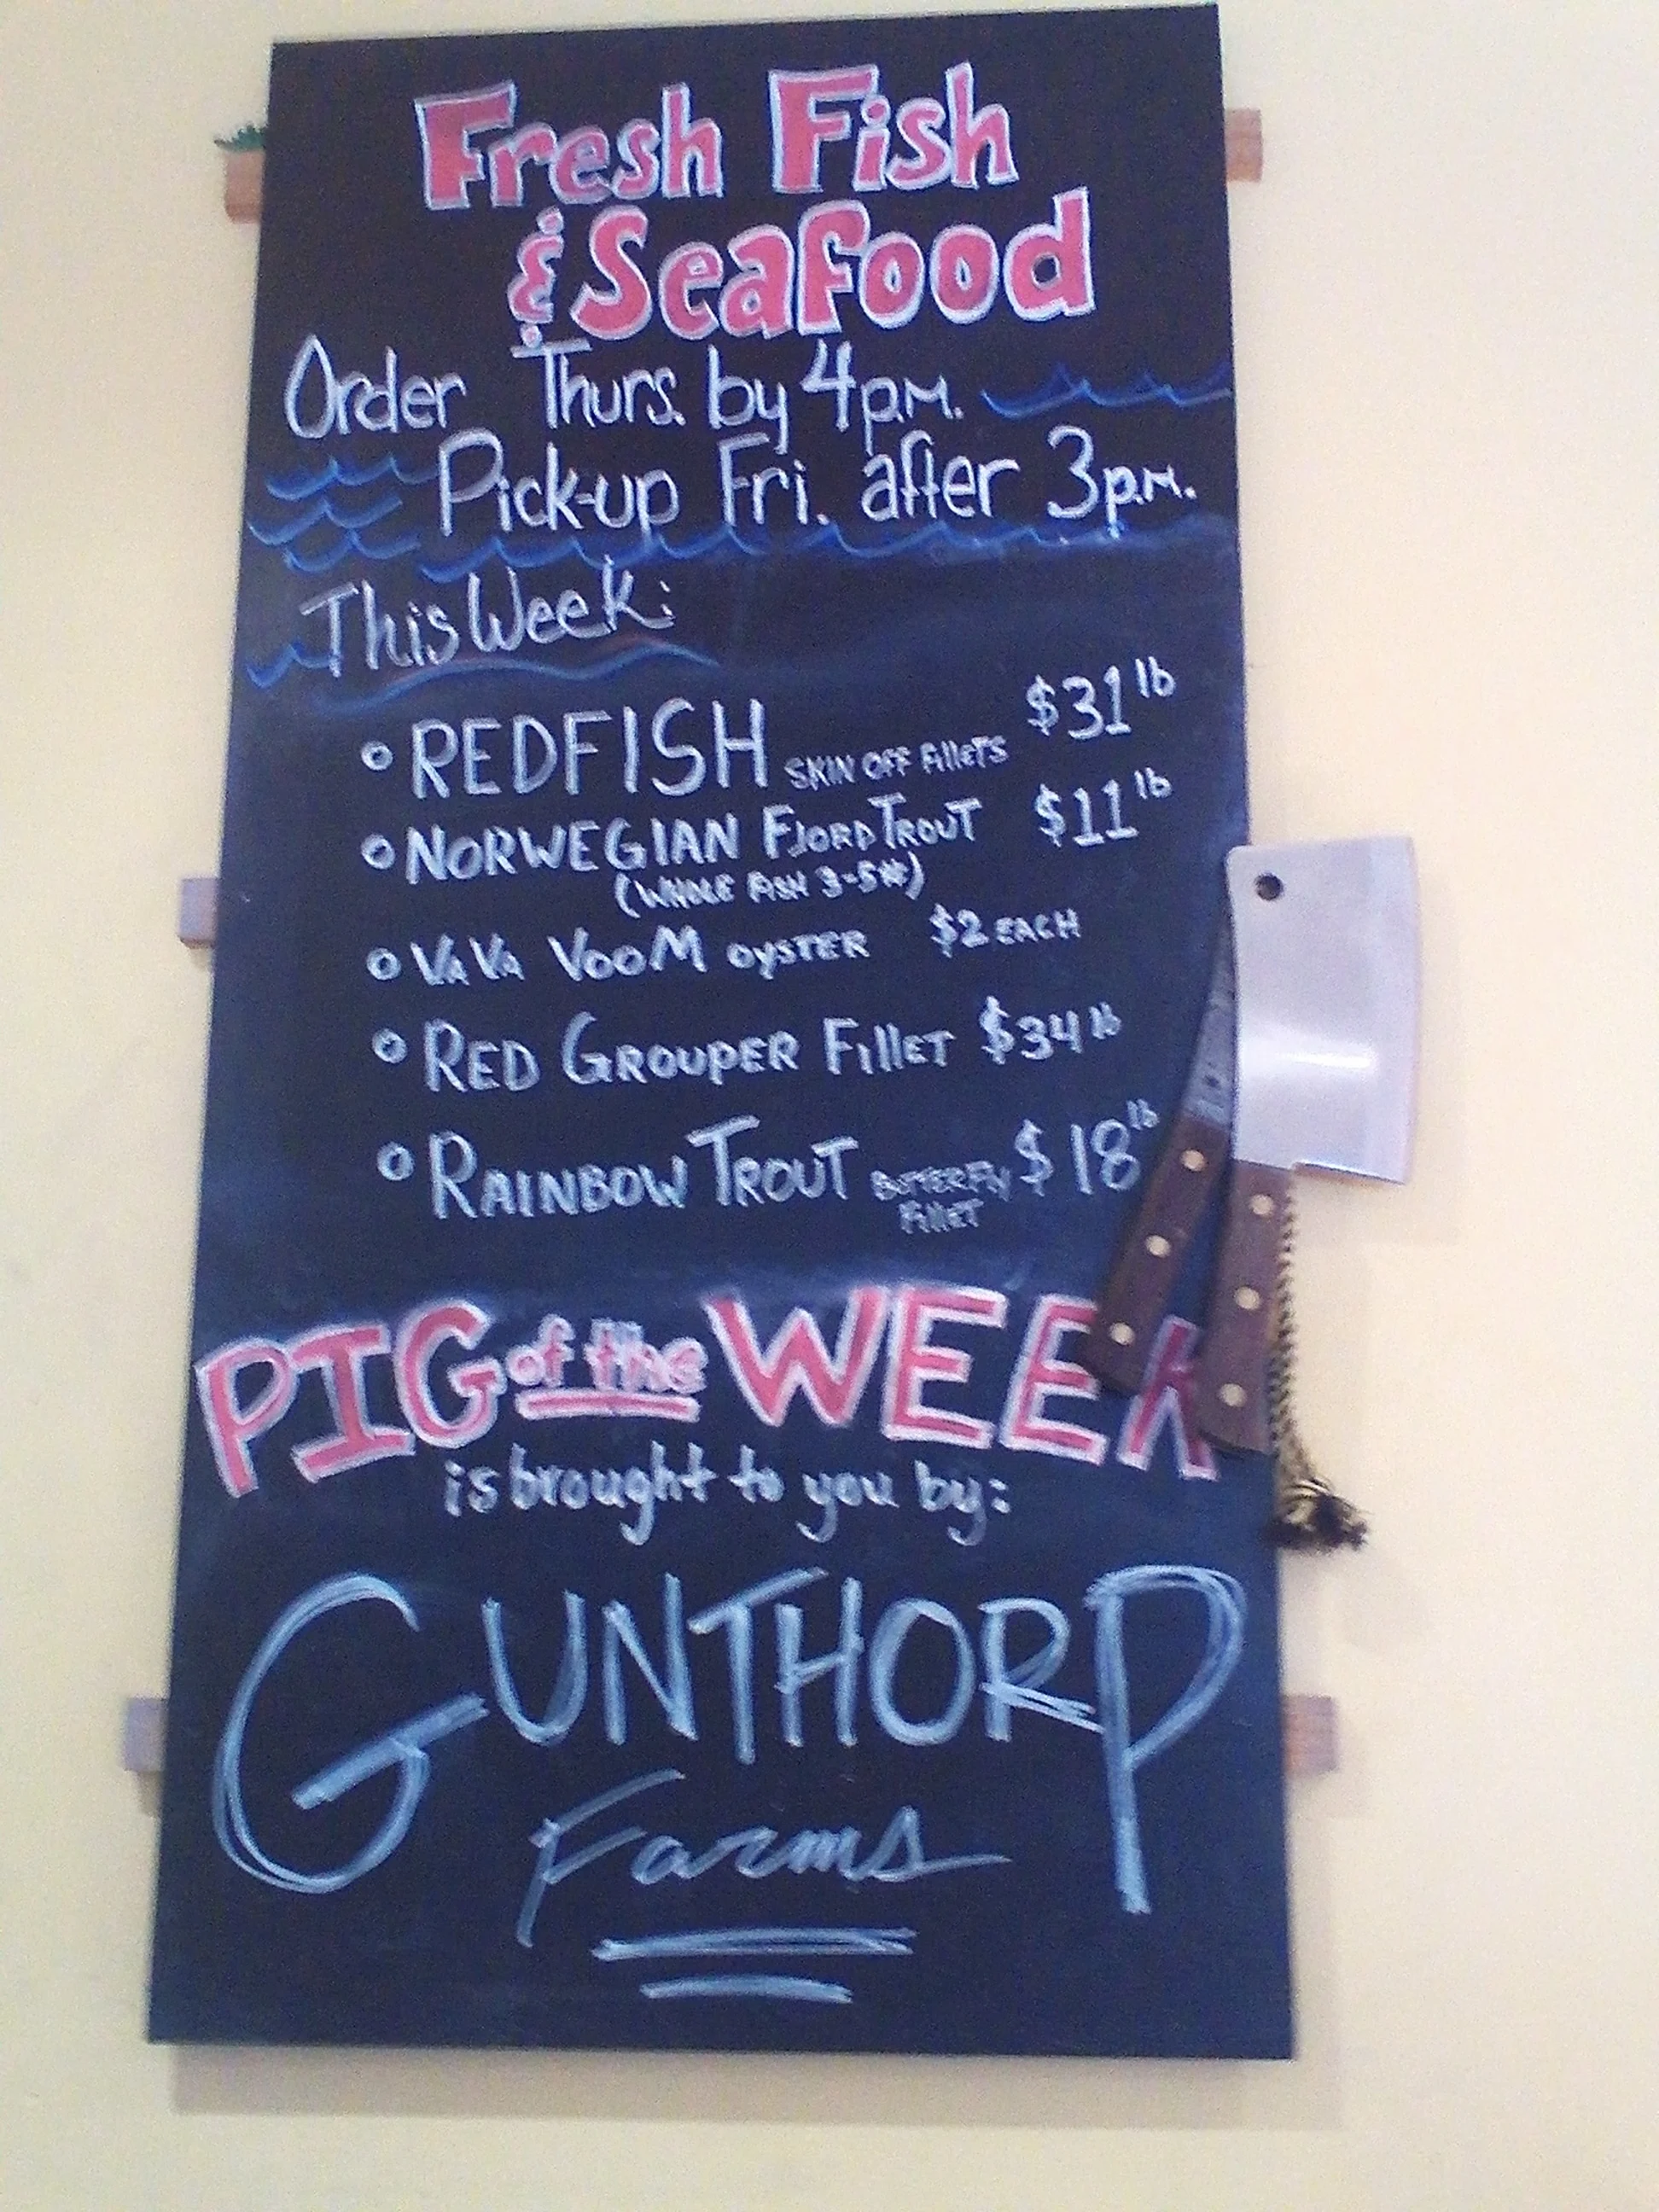 Fresh Fish
& Seafood
Order Thurs. by 4 p.m.
Pick-up Fri. after 3 p.m.
This Week:
REDFISH SKIN OFF FillETS $31 lb
NORWEGIAN FJORD TROUT $11 lb
(WHOLE FISH 3-5#)
VA VA VOOM OYSTER $2 EACH
RED GROUPER FillET $34 lb
RAINBOW TROUT BUTTERFLY FillET $18 lb
PIG of the WEEK
is brought to you by:
GUNTHORP
Farms